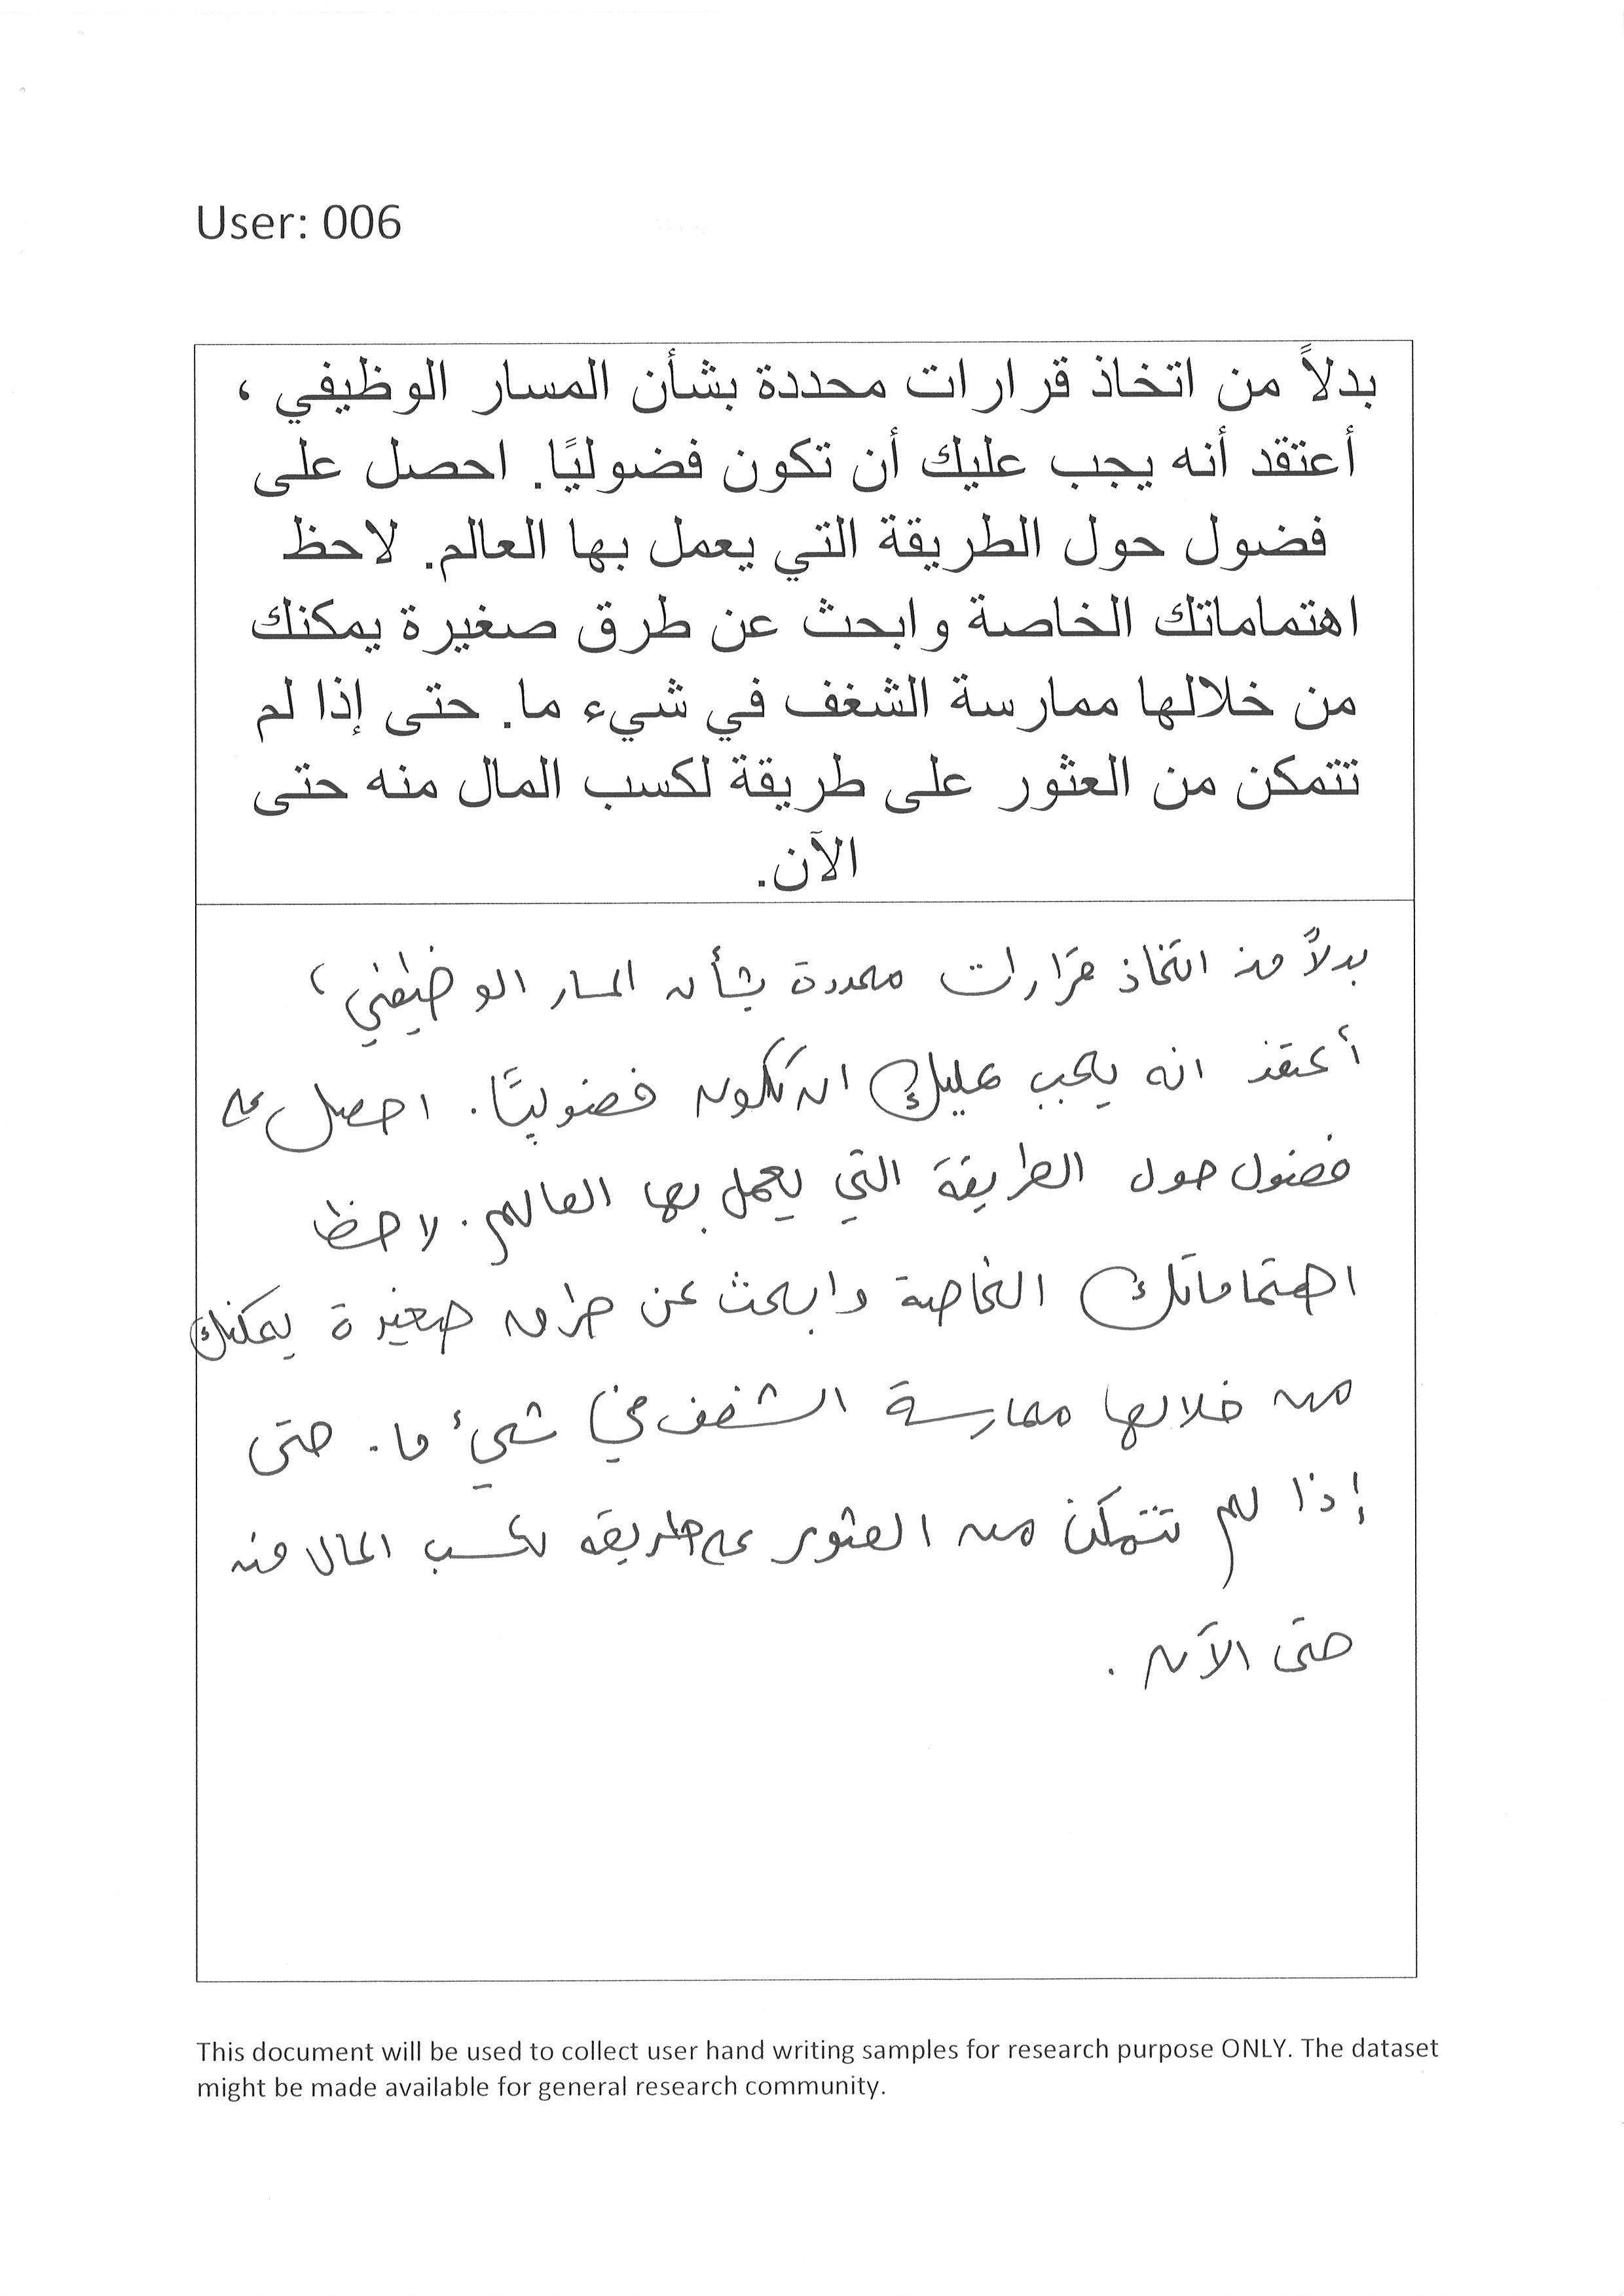 User: 006
بدلاً من اتخاذ قرارات محددة بشأن المسار الوظيفي ،
أعتقد أنه يجب عليك أن تكون فضوليًا. احصل على
فضول حول الطريقة التي يعمل بها العالم. لاحظ
اهتماماتك الخاصة وابحث عن طرق صغيرة يمكنك
من خلالها ممارسة الشغف في شيء ما. حتى إذا لم
تتمكن من العثور على طريقة لكسب المال منه حتى
الآن.
بدلاً من اتخاذ قرارات محددة بشأن المسار الوظيفي ،
أعتقد انه يجب عليك ان تكون فضوليًا. احصل على
فضول حول الطريقة التي يعمل بها العالم. لاحظ
اهتماماتك الخاصة وابحث عن طرق صغيرة يمكنك
من خلالها ممارسة الشغف في شيئ ما. حتى
إذا لم تتمكن من العثور على طريقه لكسب المال منه
حتى الآن .
This document will be used to collect user hand writing samples for research purpose ONLY. The dataset
might be made available for general research community.